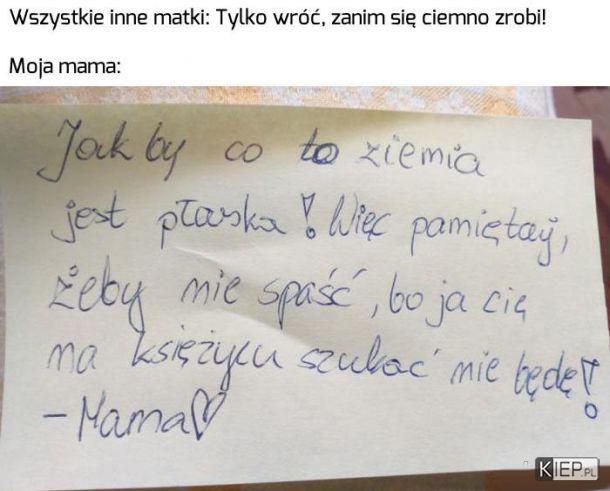 Wszystkie inne matki: Tylko wróć, zanim się ciemno zrobi!
Moja mama:
Jak by co to ziemia
jest płaska! Więc pamiętaj,
żeby nie spaść, bo ja cię
na księżycu szukać nie będę!
- Mama♡
KIEP.PL